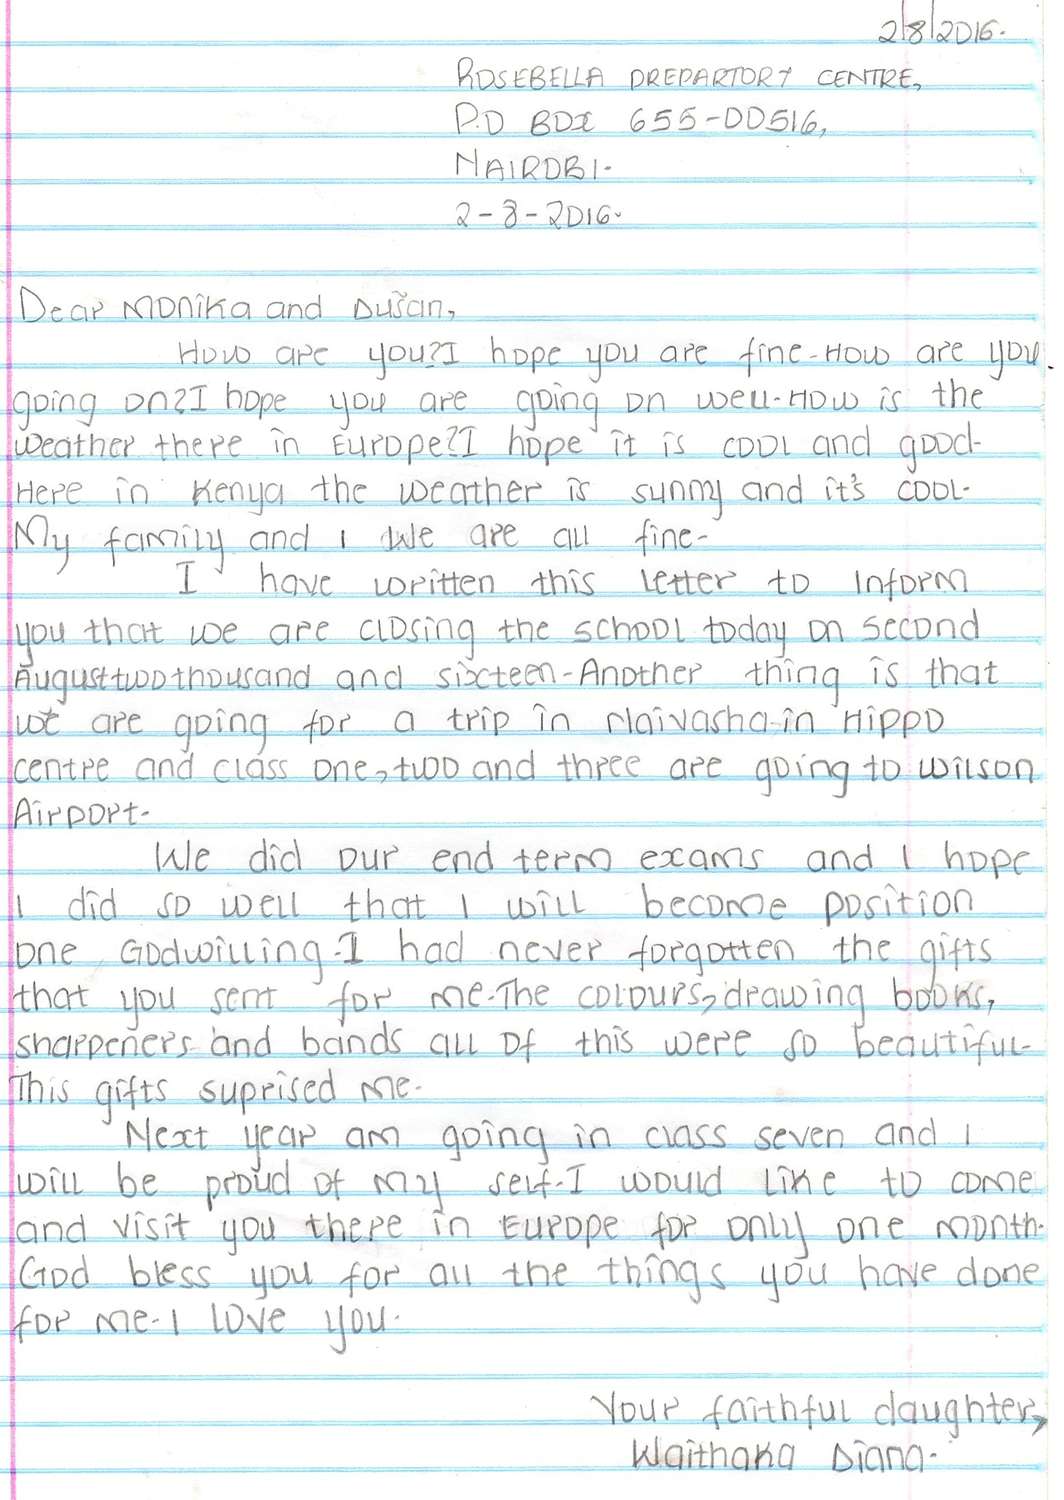 2/8/2016.
ROSEBELLA PREPARTORY CENTRE,
P.O BOX 655-00516,
NAIROBI.
2-8-2016.
Dear Monika and Dušan,
How are you? I hope you are fine. How are you
going on? I hope you are going on well. How is the
weather there in Europe? I hope it is cool and good.
Here in Kenya the weather is sunny and it's cool.
My family and I We are all fine.
I have written this letter to inform
you that we are closing the school today on second
August two thousand and sixteen. Another thing is that
we are going for a trip in Naivasha in Hippo
centre and class one, two and three are going to Wilson
Airport.
We did our end term exams and I hope
I did so well that I will become position
one Godwilling. I had never forgotten the gifts
that you sent for me. The colours, drawing books,
sharpeners and bands all of this were so beautiful.
This gifts suprised me.
Next year am going in class seven and I
will be proud of my self. I would like to come
and visit you there in Europe for only one month.
God bless you for all the things you have done
for me. I love you.
Your faithful daughter,
Waithaka Diana.